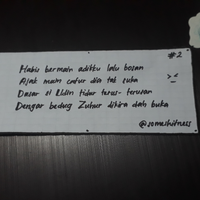 #2
Habis bermain adikku lalu bosan
Ajak main catur dia tak suka
Dasar si Udin tidur terus-terusan
Dengar bedug Zuhur dikira dah buka
@someshitness